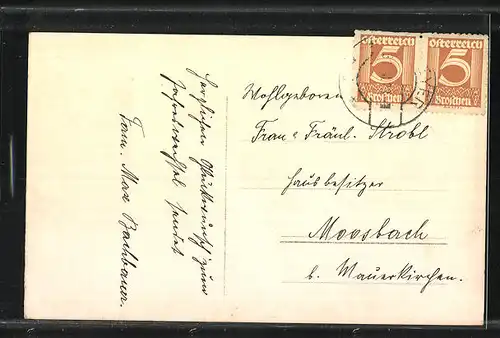 Herzlichen Glückwunsch zum
Jahreswechsel sendet
Fam. Max Bachbauer.
österreich
5
Groschen
österreich
5
Groschen
Wohlgeboren
Frau & Fräul. Strobl
Hausbesitzer
Moosbach
b. Mauerkirchen.